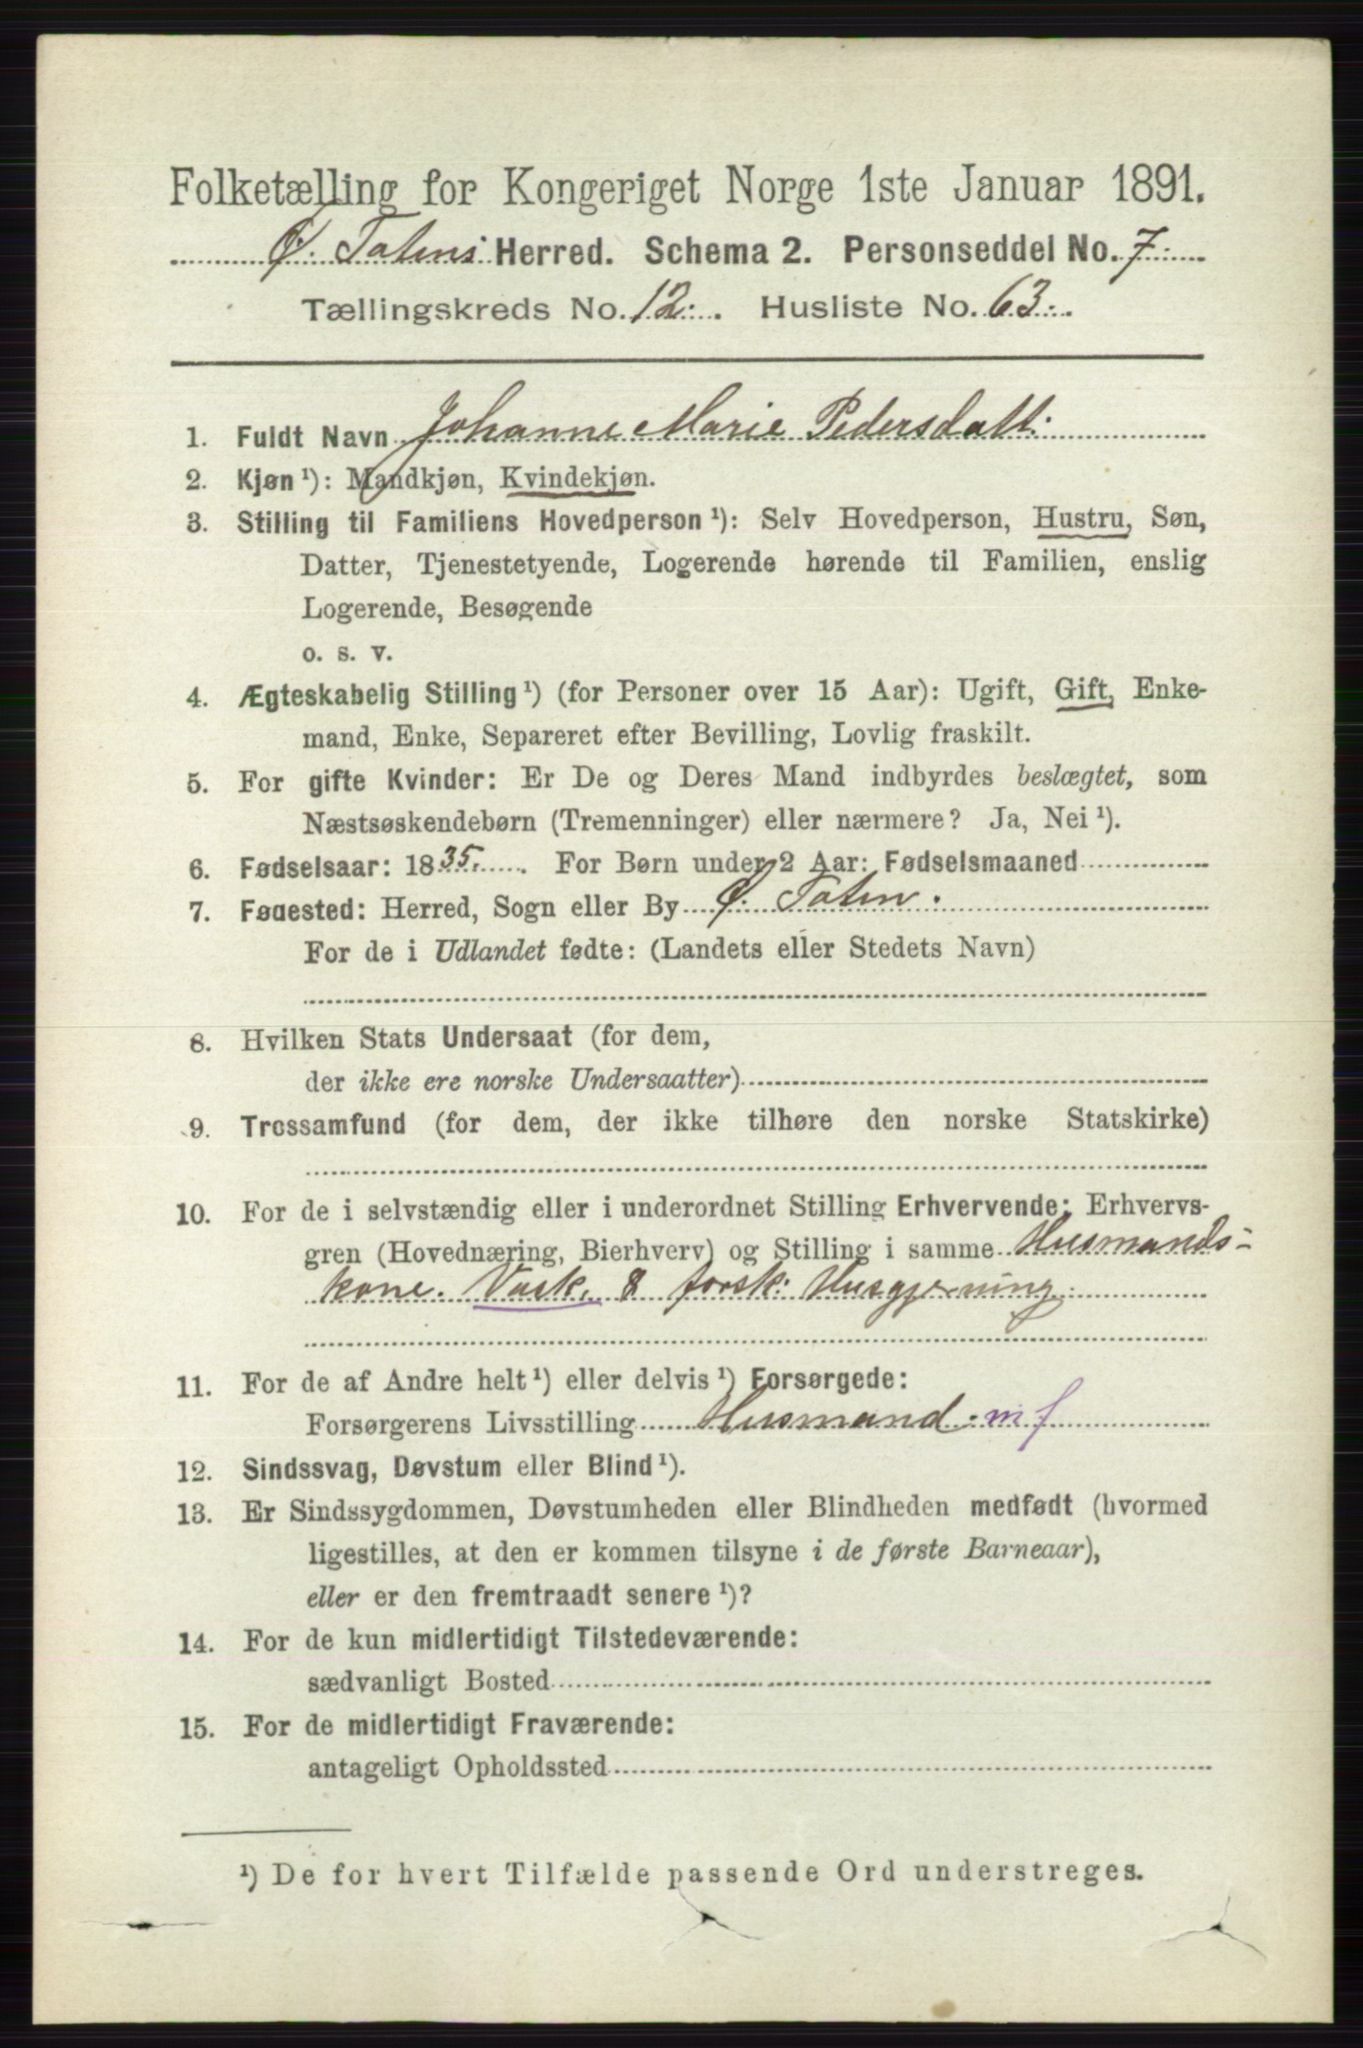 Folketælling for Kongeriget Norge 1ste Januar 1891.
Ø. Totens Herred. Schema 2. Personseddel No. 7.
Tællingskreds No. 12. Husliste No. 63.
1. Fuldt Navn Johanne Marie Pedersdatt:
2. Kjøn ¹): Mandkjøn, Kvindekjøn.
3. Stilling til Familiens Hovedperson ¹): Selv Hovedperson, Hustru, Søn,
Datter, Tjenestetyende, Logerende hørende til Familien, enslig
Logerende, Besøgende
o. s. v.
4. Ægteskabelig Stilling ¹) (for Personer over 15 Aar): Ugift, Gift, Enke-
mand, Enke, Separeret efter Bevilling, Lovlig fraskilt.
5. For gifte Kvinder: Er De og Deres Mand indbyrdes beslægtet, som
Næstsøskendebørn (Tremenninger) eller nærmere? Ja, Nei ¹).
6. Fødselsaar: 1835. For Børn under 2 Aar: Fødselsmaaned
7. Fødested: Herred, Sogn eller By Ø. Toten.
For de i Udlandet fødte: (Landets eller Stedets Navn)
8. Hvilken Stats Undersaat (for dem,
der ikke ere norske Undersaatter)
9. Trossamfund (for dem, der ikke tilhøre den norske Statskirke)
10. For de i selvstændig eller i underordnet Stilling Erhvervende: Erhvervs-
gren (Hovednæring, Bierhverv) og Stilling i samme Husmands-
kone. Vask. & forsk: Husgjerning.
11. For de af Andre helt ¹) eller delvis ¹) Forsørgede:
Forsørgerens Livsstilling Husmand. m f
12. Sindssvag, Døvstum eller Blind ¹).
13. Er Sindssygdommen, Døvstumheden eller Blindheden medfødt (hvormed
ligestilles, at den er kommen tilsyne i de første Barneaar),
eller er den fremtraadt senere ¹)?
14. For de kun midlertidigt Tilstedeværende:
sædvanligt Bosted
15. For de midlertidigt Fraværende:
antageligt Opholdssted
¹) De for hvert Tilfælde passende Ord understreges.